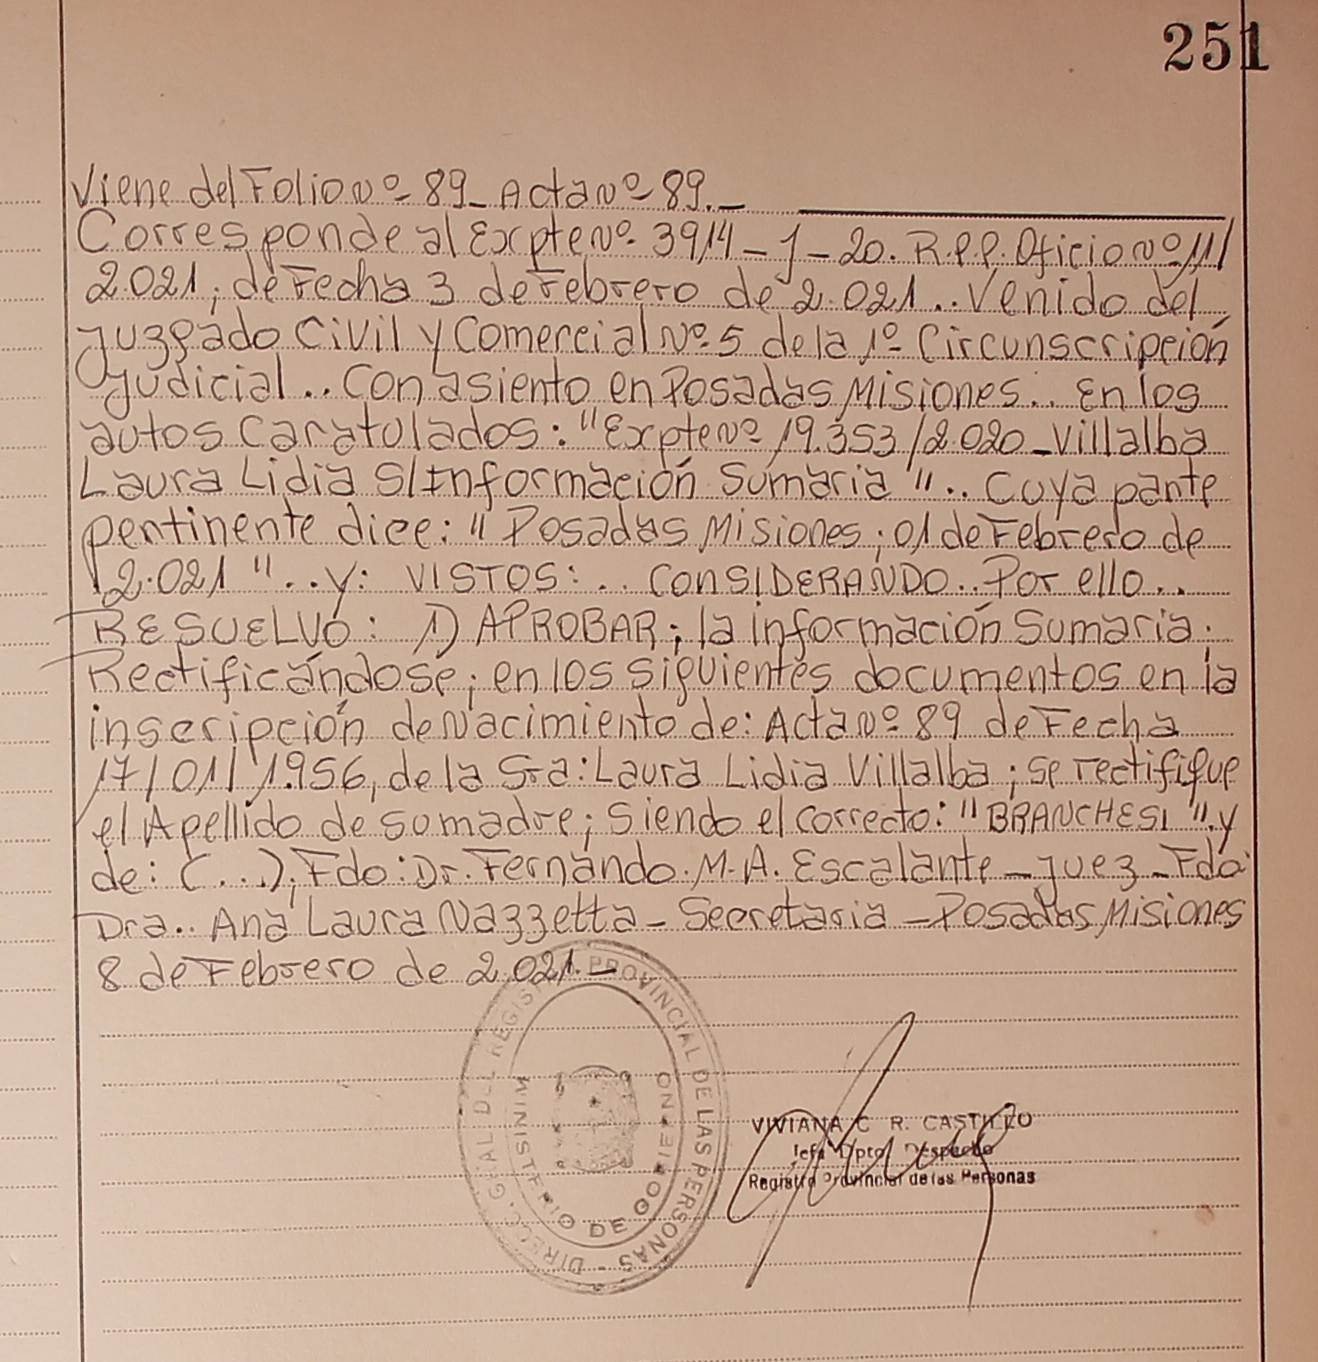 251
Viene del Folio Nº 89_ Acta Nº 89._
Corresponde al Expte Nº 3914_J_20. R.P.P. Oficio Nº 11/
2.021; de Fecha 3 de Febrero de 2.021.. Venido del
Juzgado Civil y Comercial Nº 5 de la 1º Circunscripción
Judicial.. Con asiento en Posadas Misiones.. En los
autos Caratulados: "Expte Nº 19.353/2.020_Villalba
Laura Lidia S/Información Sumaria".. Cuya parte
pertinente dice: "Posadas Misiones; 01 de Febrero de
2.021".. y: VISTOS:.. CONSIDERANDO.. Por ello..
RESUELVO: 1) APROBAR; la información Sumaria.
Rectificándose; en los siguientes documentos en la
inscripción de Nacimiento de: Acta Nº 89 de Fecha
17/01/1.956, de la Sra: Laura Lidia Villalba; se rectifique
el Apellido de su madre; siendo el correcto: "BRANCHESI" y
de: (...); Fdo: Dr. Fernando. M. A. Escalante_Juez_Fdo
Dra.. Ana Laura Nazzetta_Secretaria_Posadas Misiones
8 de Febrero de 2.021._
DIREC. GRAL DEL REGISTRO PROVINCIAL DE LAS PERSONAS -
MINISTERIO DE GOBIERNO
VIVIANA C R. CASTILLO
Jefa Dpto Despacho
Registro Provincial de las Personas